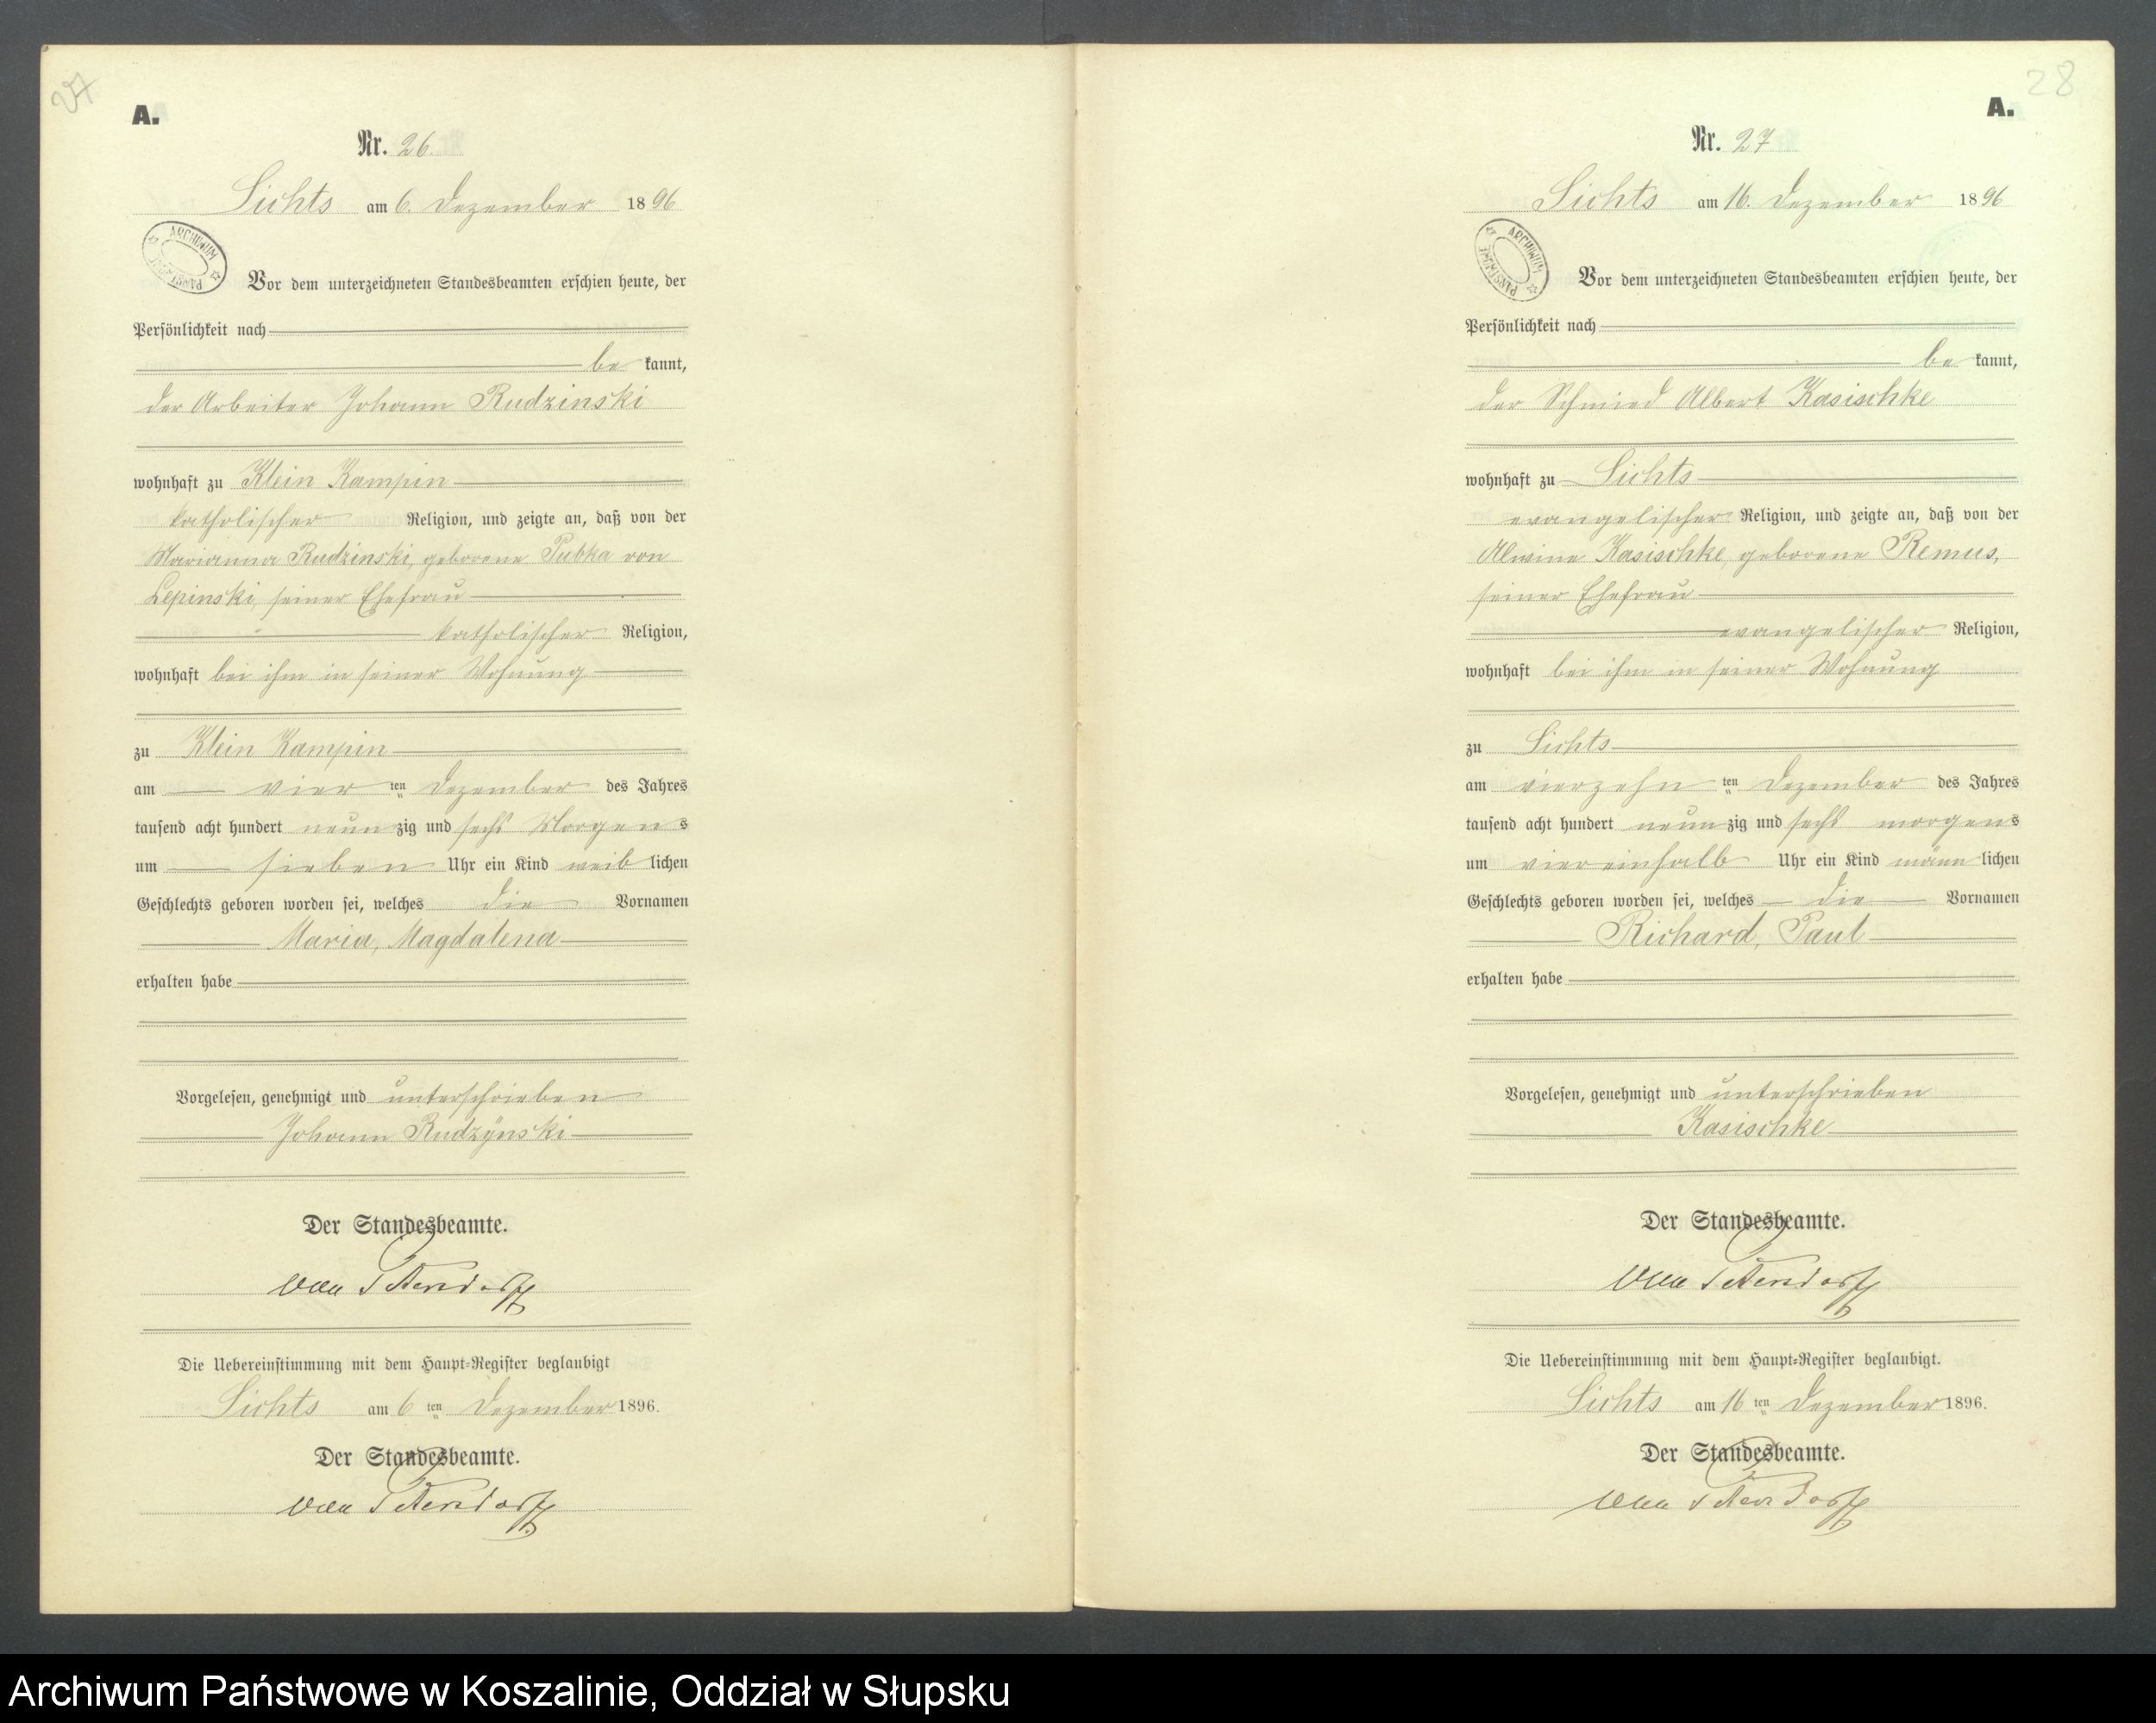 27
A.
Nr. 26.
Lichts am 6. Dezember 1896
ARCHIWUM PAŃSTWOWE
Vor dem unterzeichneten Standesbeamten erschien heute, der
Persönlichkeit nach
be kannt,
der Arbeiter Johann Rudzinski
wohnhaft zu Klein Kampin
katholischer Religion, und zeigte an, daß von der
Marianna Rudzinski, geborene Pubka von
Lepinski, seiner Ehefrau
katholischer Religion,
wohnhaft bei ihm in seiner Wohnung
zu Klein Kampin
am vier ten Dezember des Jahres
tausend acht hundert neun zig und sechs Morgens
um sieben Uhr ein Kind weib lichen
Geschlechts geboren worden sei, welches die Vornamen
Maria, Magdalena
erhalten habe
Vorgelesen, genehmigt und unterschrieben
Johann Rudzÿnski
Der Standesbeamte.
Die Uebereinstimmung mit dem Haupt-Register beglaubigt
Lichts am 6 ten Dezember 1896.
Der Standesbeamte.
28
A.
Nr. 27
Lichts am 16. Dezember 1896
ARCHIWUM PAŃSTWOWE
Vor dem unterzeichneten Standesbeamten erschien heute, der
Persönlichkeit nach
be kannt,
der Schmied Albert Kasischke
wohnhaft zu Lichts
evangelischer Religion, und zeigte an, daß von der
Alwine Kasischke, geborene Remus,
seiner Ehefrau
evangelischer Religion,
wohnhaft bei ihm in seiner Wohnung
zu Lichts
am vierzehn ten Dezember des Jahres
tausend acht hundert neun zig und sechs morgens
um viereinhalb Uhr ein Kind männ lichen
Geschlechts geboren worden sei, welches die Vornamen
Richard, Paul
erhalten habe
Vorgelesen, genehmigt und unterschrieben
Kasischke
Der Standesbeamte.
Die Uebereinstimmung mit dem Haupt-Register beglaubigt.
Lichts am 16 ten Dezember 1896.
Der Standesbeamte.
Archiwum Państwowe w Koszalinie, Oddział w Słupsku